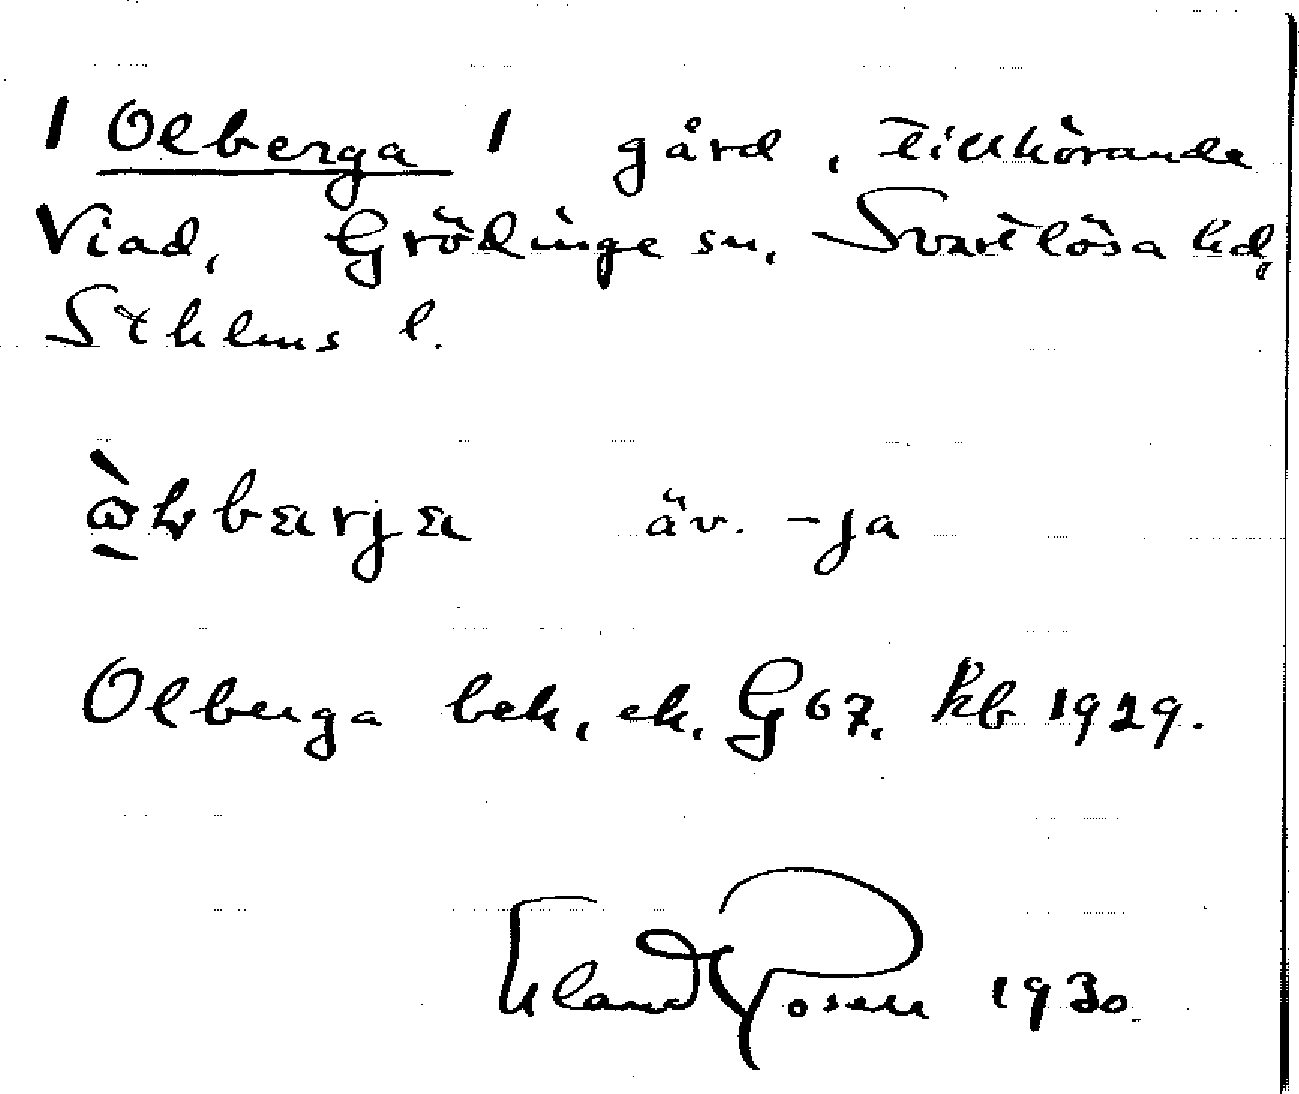 / Olberga / gård, tillhörande
Viad, Grödinge sn, Svartlösa hd,
Sthlms l.
äv. -ja
Olberga bek, ek. G 67. kb 1929.
Rosen 1930.